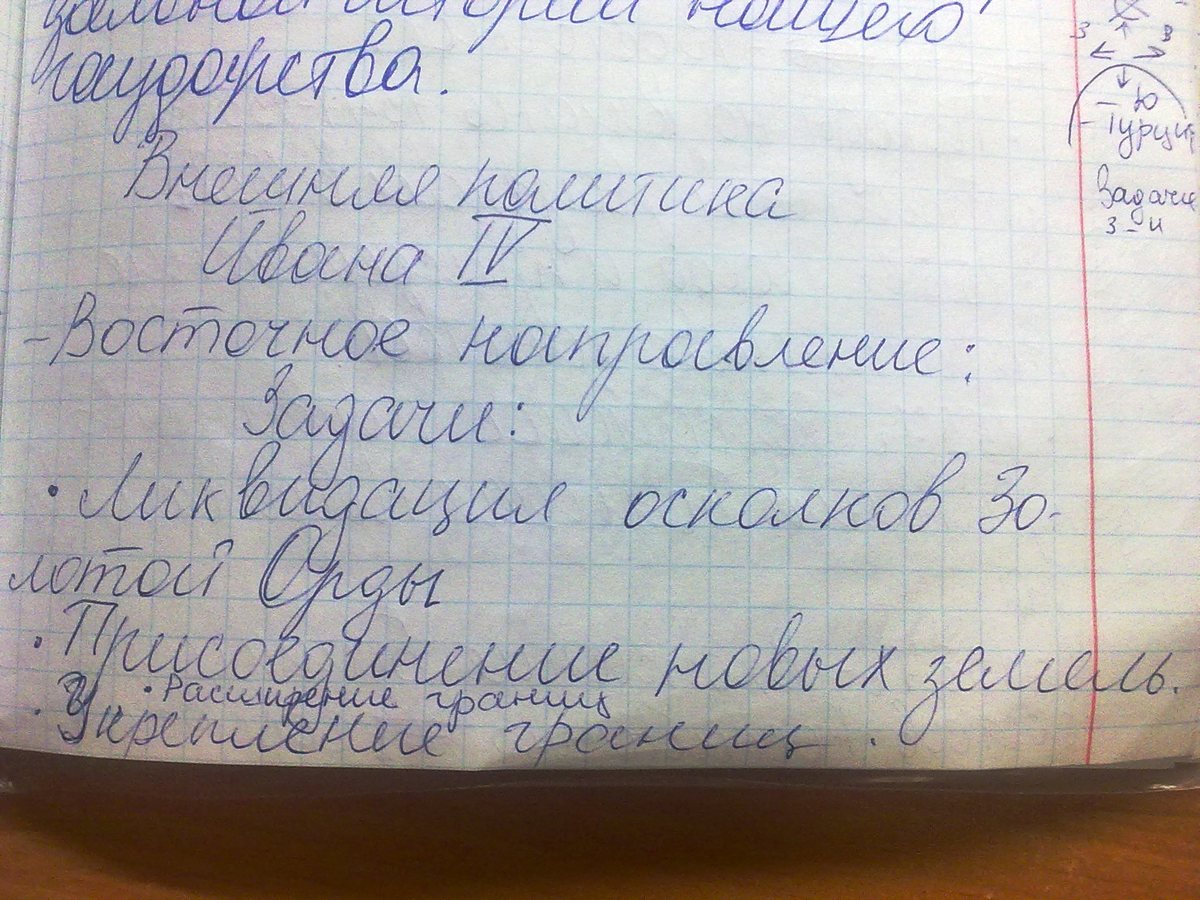 истории нашего
государства.
Внешняя политика
Ивана IV
- Восточное направление:
Задачи:
· Ликвидация осколков Зо-
лотой Орды
· Присоединение новых земель.
· Расширение границ
· Укрепление границ.
З В
- Ю
- Турция
Задачи
З - и